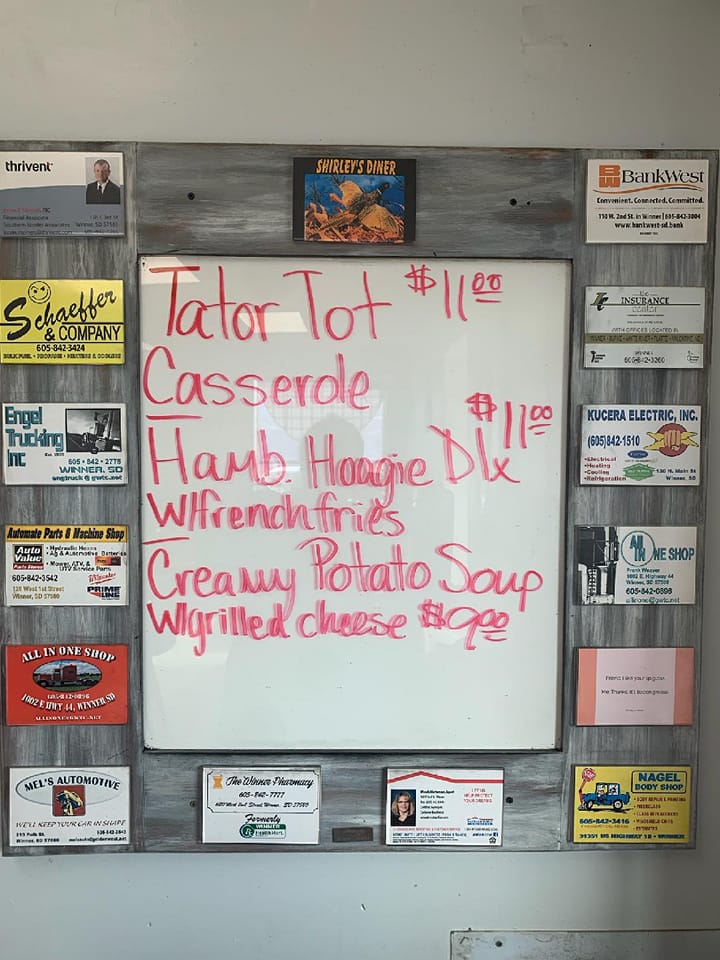 SHIRLEY'S DINER
Tator Tot $11.00
Casserole
Hamb. Hoagie Dlx $11.00
W/french fries
Creamy Potato Soup
W/grilled cheese $9.00
thrivent
Financial Associate
Schaeffer
& COMPANY
605-842-3424
Engel
Trucking
Inc
605 • 842 • 2775
WINNER, SD
engtruck@gwtc.net
Automate Parts & Machine Shop
Auto
Value
Parts Stores
• Hydraulic Hoses
• Ag & Automotive Batteries
• Mower, ATV, &
UTV Service Parts
605-842-3542
Winner, SD 57580
PRIME
LINE
ALL IN ONE SHOP
605-842-0896
1002 E HWY 44, WINNER, SD
ALLINONE@GWTC.NET
MEL'S AUTOMOTIVE
WE'LL KEEP YOUR CAR IN SHAPE
Winner, SD 57580
The Winner Pharmacy
605-842-7777
Formerly
WINNER
Health Mart.
BW BANKWEST
Convenient. Connected. Committed.
110 W. 2nd St. in Winner | 605-842-3004
www.bankwest-sd.bank
the
INSURANCE
center
WITH OFFICES LOCATED IN
605-842-3260
KUCERA ELECTRIC, INC.
(605)842-1510
•Electrical
•Heating
•Cooling
•Refrigeration
130 N. Main St
Winner, SD
ALL IN ONE SHOP
Frank Weaver
1002 E. Highway 44
Winner, SD 57580
605-842-0896
allinone@gwtc.net
NAGEL
BODY SHOP
• BODY REPAIR & PAINTING
• FIBERGLASS
• GLASS REPLACEMENT
• WINDSHIELD CHIPS
• ESTIMATES
605-842-3416
31351 US HIGHWAY 18 - WINNER